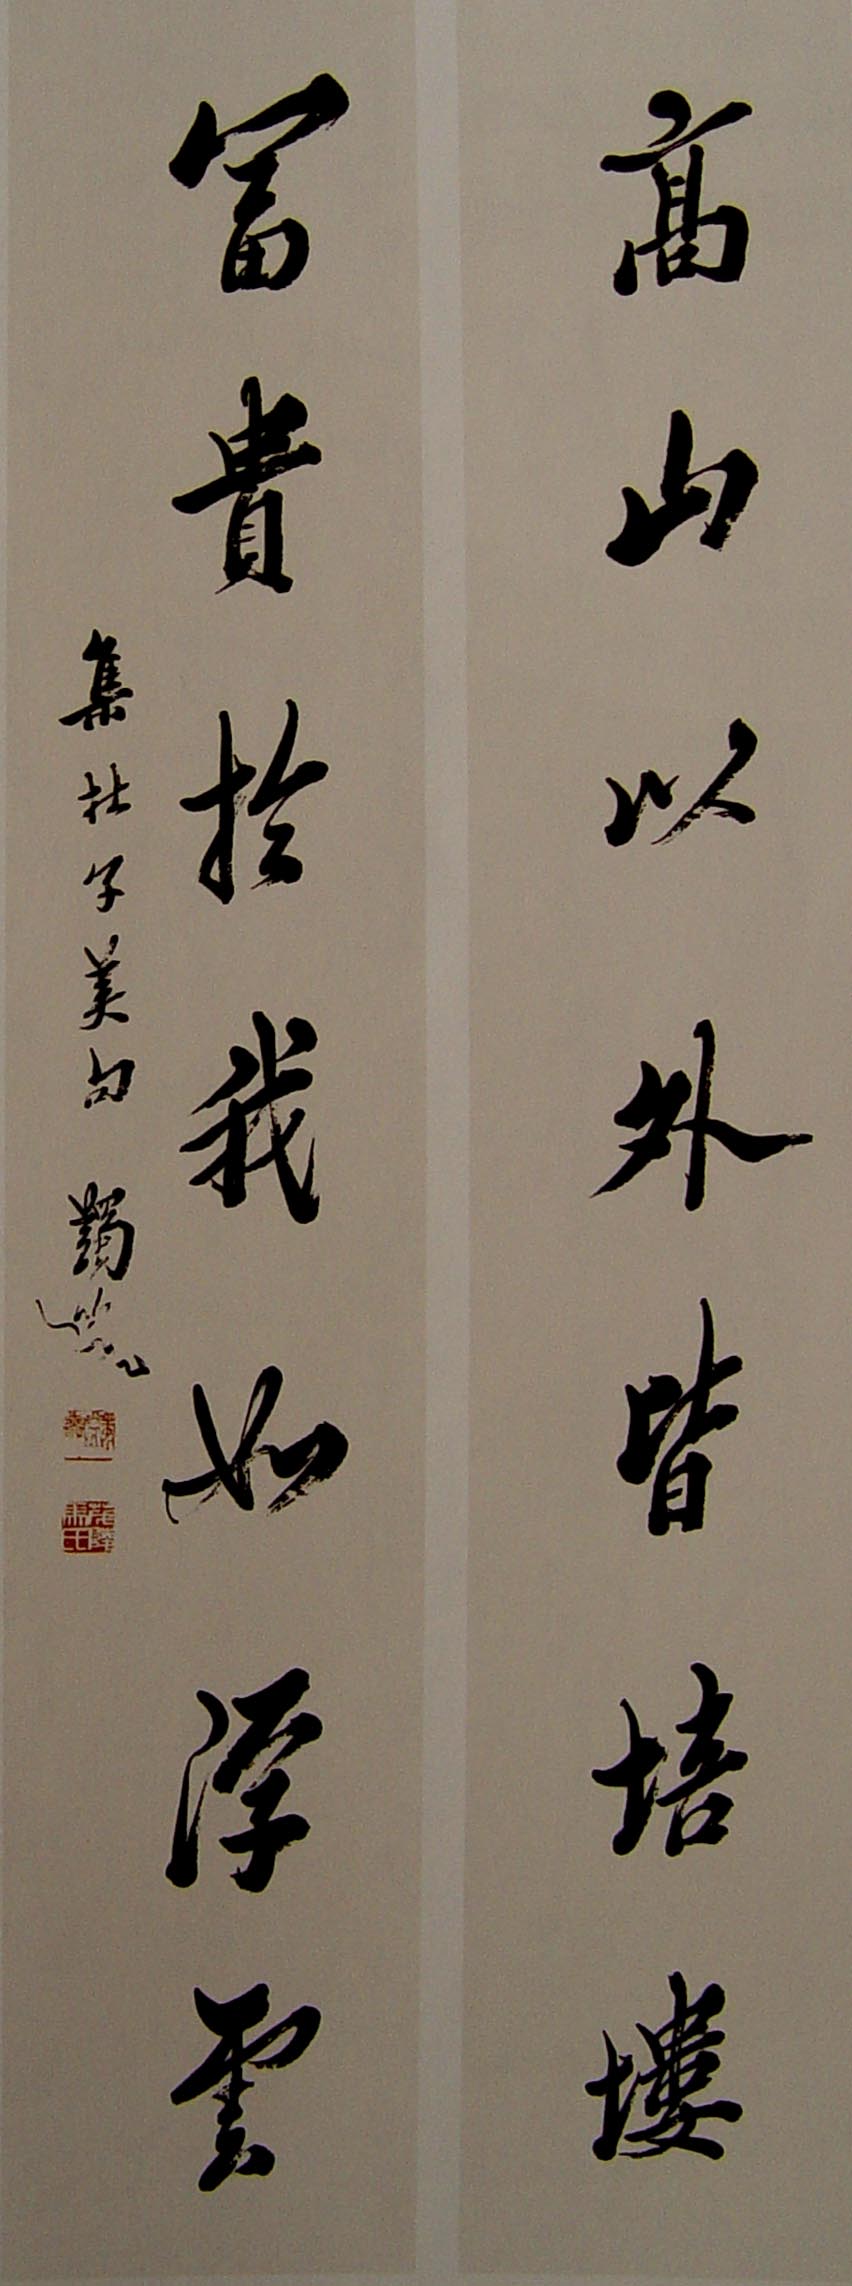 高山以外皆培塿
富貴於我如浮雲
集杜子美句 蠲叟